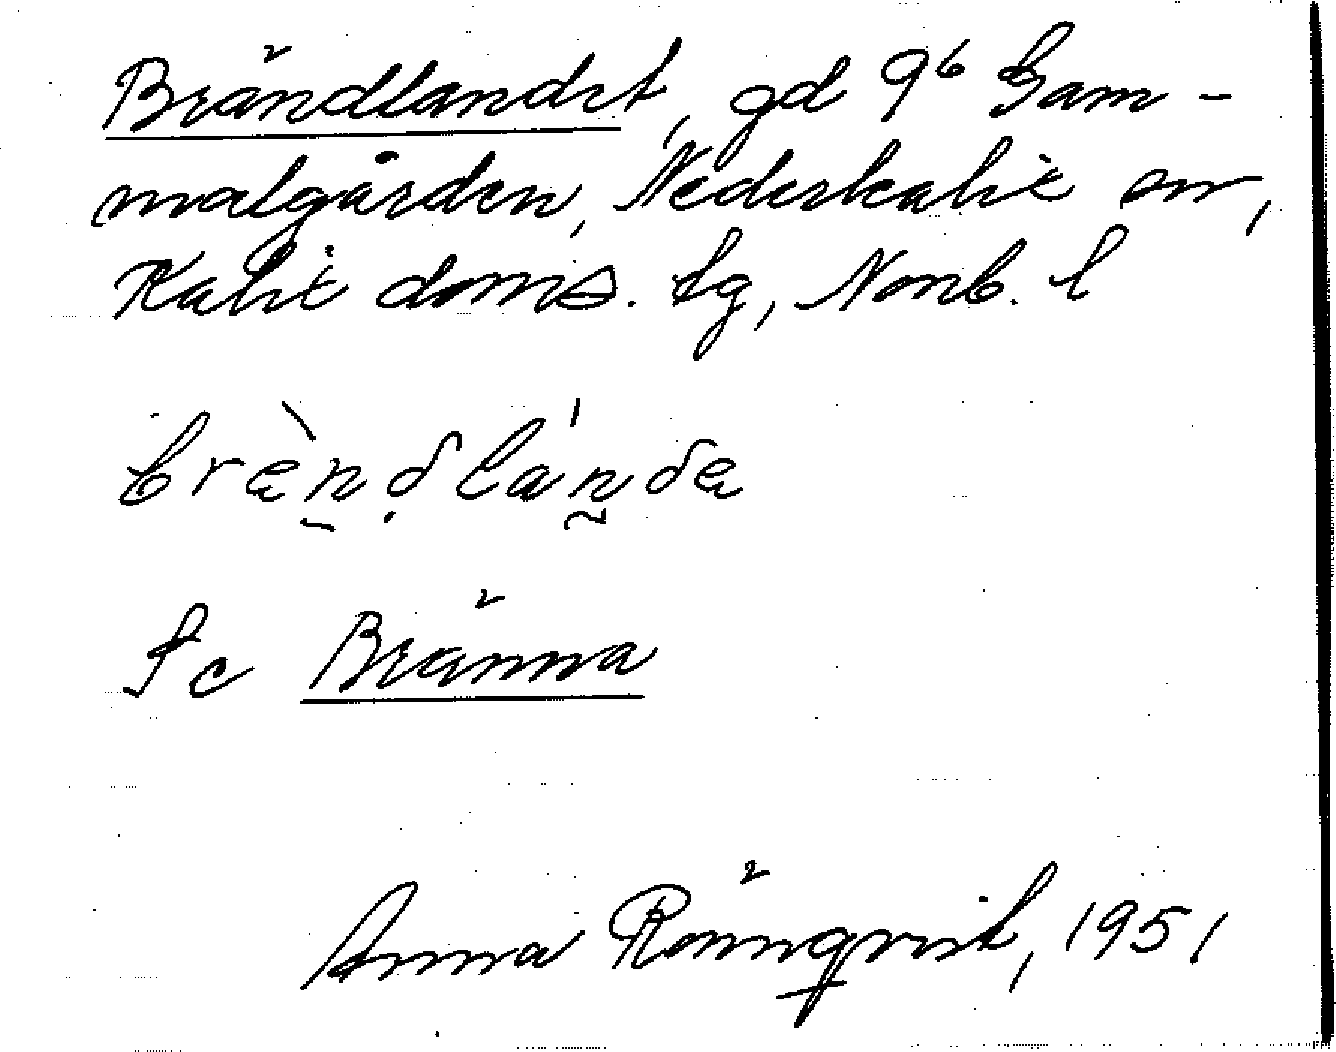 Brändlandet, gd 9⁶ Gam-
malgården, Nederkalix sn,
Kalix doms. tg, Norrb. l
bræ̀nd̩lánda
Se Bränna
Anna Rönnqvist, 1951